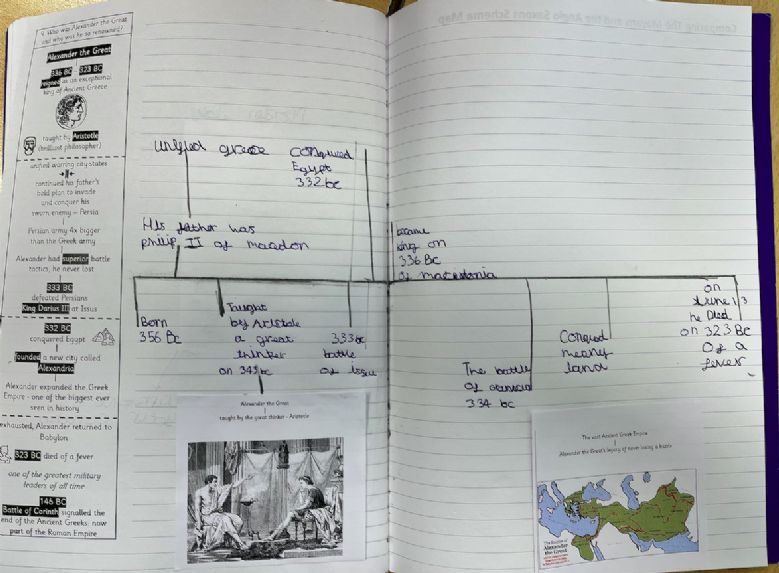 Comparing The Mayans and the Anglo Saxons Scheme Map
9. Who was Alexander the Great
and why was he so renowned?
Alexander the Great
336 BC - 323 BC
reigned as an exceptional
king of Ancient Greece
taught by Aristotle
(brilliant philosopher)
unified warring city states
continued his father's
bold plan to invade
and conquer his
sworn enemy – Persia
Persian army 4x bigger
than the Greek army
Alexander had superior battle
tactics, he never lost
333 BC
defeated Persians
King Darius III at Issus
332 BC
conquered Egypt
founded a new city called
Alexandria
Alexander expanded the Greek
Empire - one of the biggest ever
seen in history
exhausted, Alexander returned to
Babylon
323 BC died of a fever
one of the greatest military
leaders of all time
146 BC
Battle of Corinth signalled the
end of the Ancient Greeks: now
part of the Roman Empire
unified greece
Conquered
Egypt
332 bc
His father was
philip II of
became
king on
336 Bc
of macedonia
Born
356 Bc
Taught
by Aristotle
a great
thinker
on 343bc
333bc
battle
of
The battle
of
334 bc
Conqued
meany
land
on
June 13
he Died
on 323 Bc
of a
fever
Alexander the Great
taught by the great thinker - Aristotle
The vast Ancient Greek Empire
Alexander the Great's legacy of never losing a battle
The Empire of
Alexander
the Great